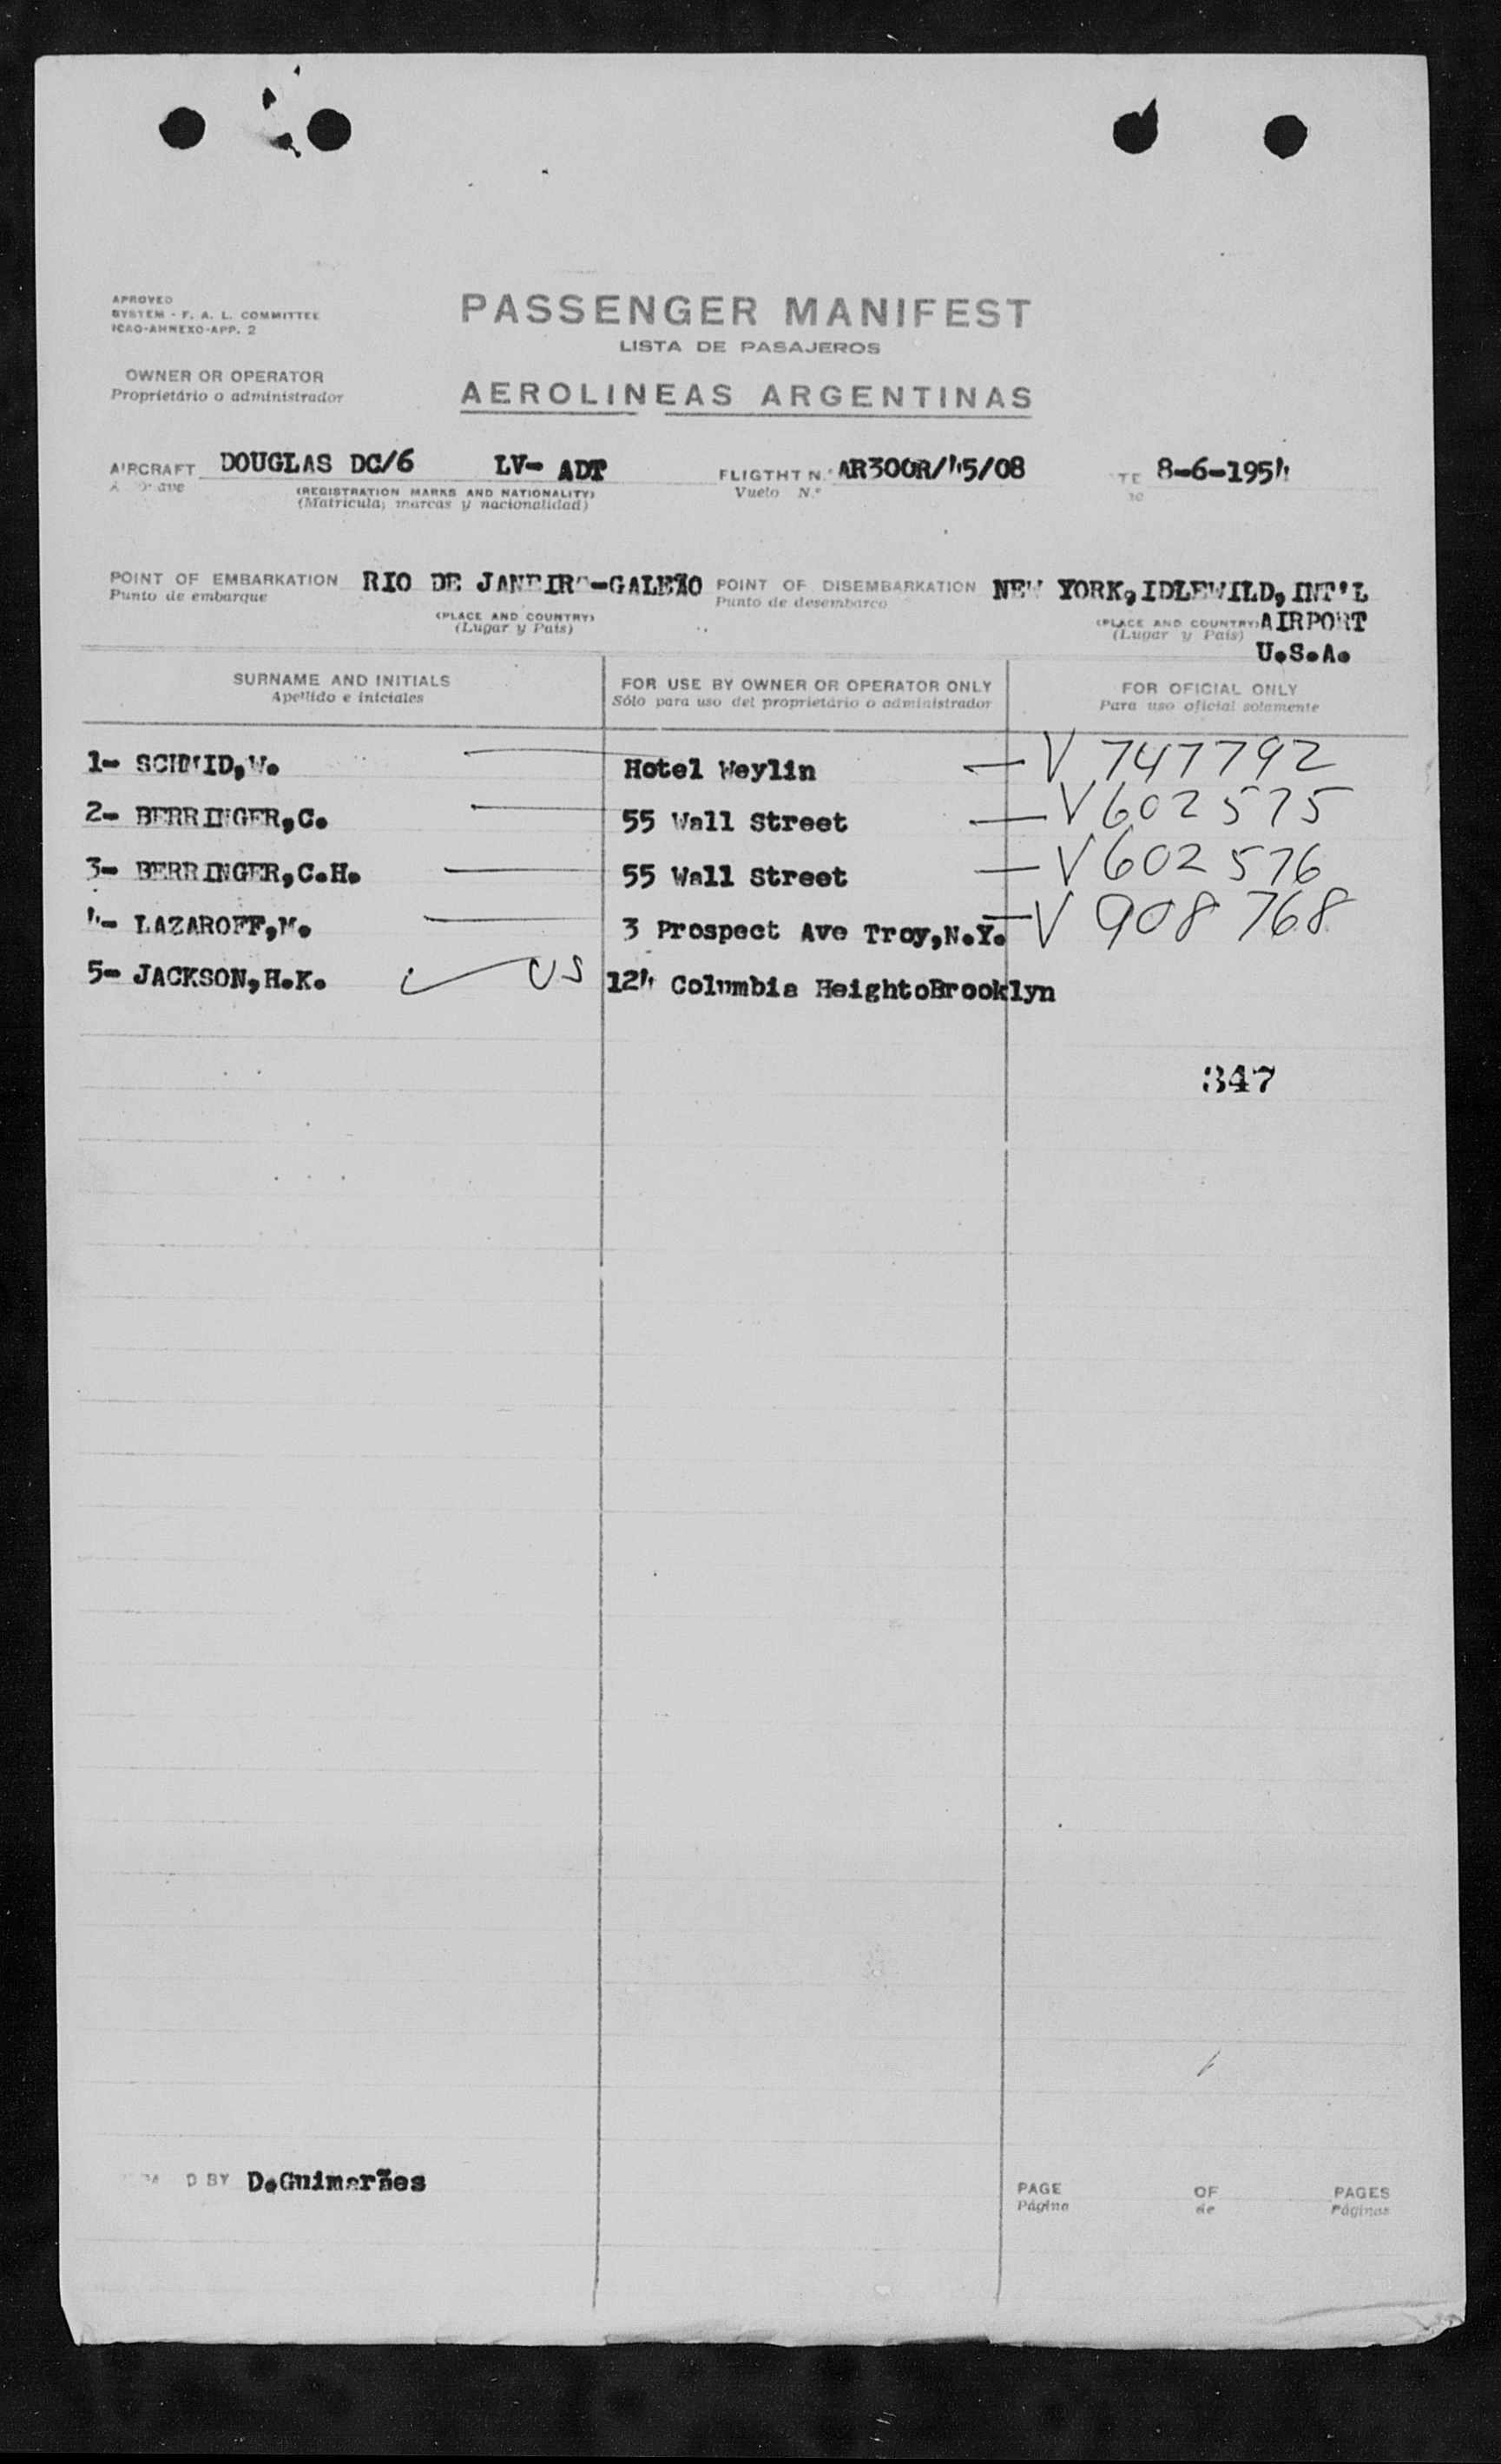 APROVED
SYSTEM - F. A. L. COMMITTEE
ICAO-ANNEXO-APP. 2
PASSENGER MANIFEST
LISTA DE PASAJEROS
OWNER OR OPERATOR
Proprietário o administrador
AEROLINEAS ARGENTINAS
AIRCRAFT DOUGLAS DC/6 LV- ADT FLIGTHT N.° AR300R/45/08 TE 8-6-1954
(REGISTRATION MARKS AND NATIONALITY) Vuelo N.°
(Matrícula, marcas y nacionalidad)
POINT OF EMBARKATION RIO DE JANEIRO-GALEÃO POINT OF DISEMBARKATION NEW YORK, IDLEWILD, INT'L
Punto de embarque Punto de desembarco
(PLACE AND COUNTRY) (PLACE AND COUNTRY) AIRPORT
(Lugar y País) (Lugar y País)
U.S.A.
SURNAME AND INITIALS FOR USE BY OWNER OR OPERATOR ONLY FOR OFICIAL ONLY
Apellido e iniciales Sólo para uso del proprietário o administrador Para uso oficial solamente
1- SCHMID,W. Hotel Weylin — V 747792
2- BERRINGER,C. 55 Wall Street — V602575
3- BERRINGER,C.H. 55 Wall Street — V602576
4- LAZAROFF,M. 3 Prospect Ave Troy,N.Y. — V 908768
5- JACKSON,H.K. ✓ US 124 Columbia HeightoBrooklyn
347
D BY D.Guimarães
PAGE OF PAGES
Página de Páginas